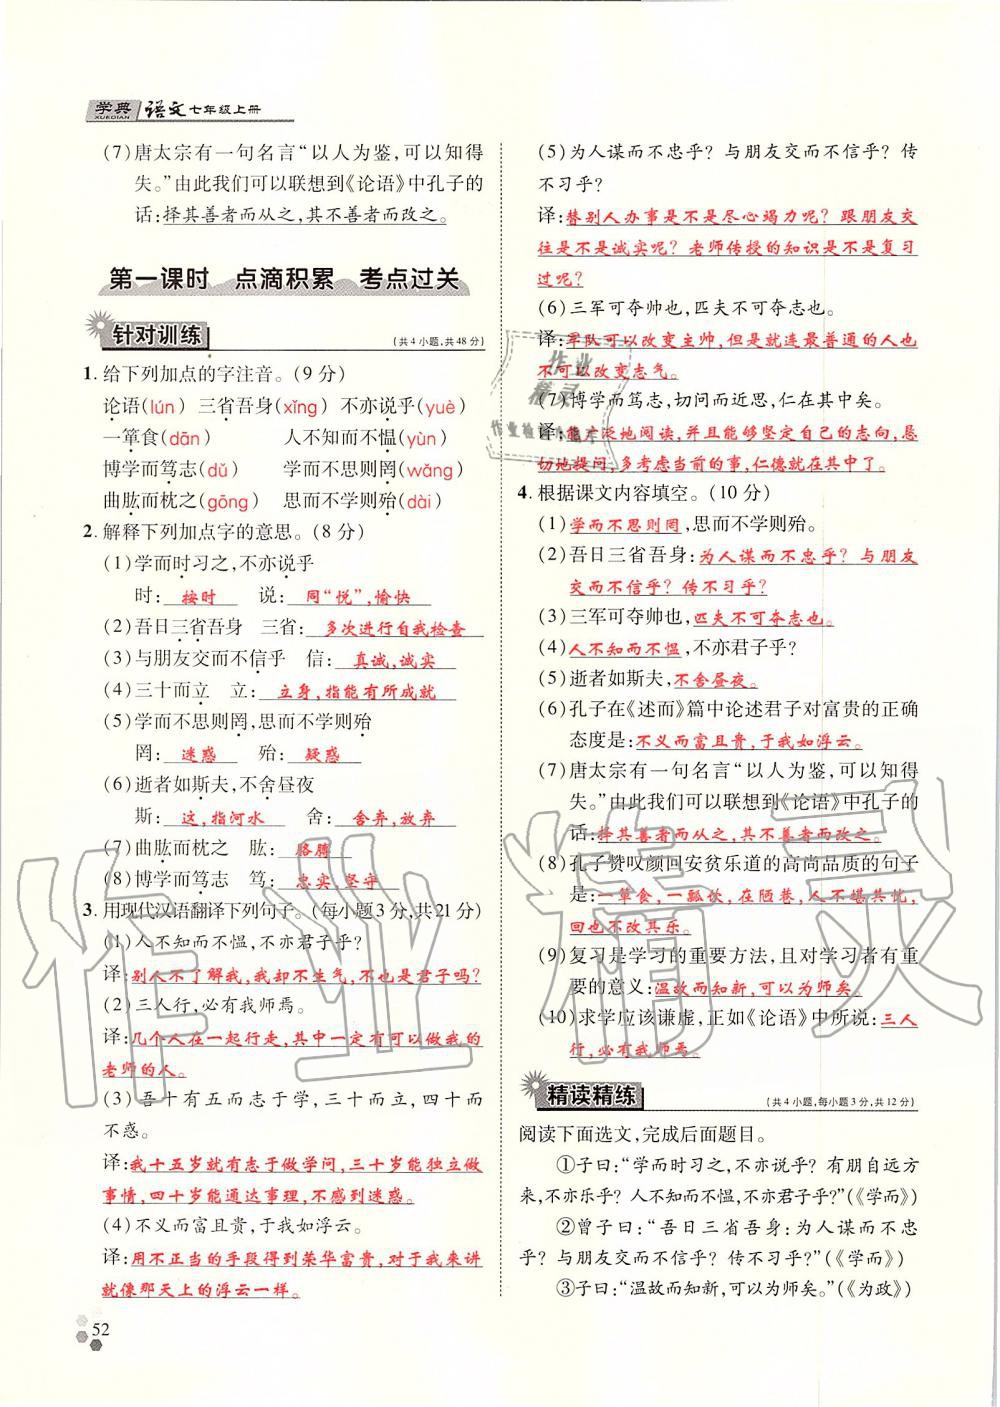 学典 语文七年级上册
XUEDIAN
(7)唐太宗有一句名言“以人为鉴,可以知得
失。”由此我们可以联想到《论语》中孔子的
话:择其善者而从之,其不善者而改之。
第一课时 点滴积累 考点过关
针对训练 (共4小题,共48分)
1. 给下列加点的字注音。(9分)
论语(lún) 三省吾身(xǐng) 不亦说乎(yuè)
一箪食(dān) 人不知而不愠(yùn)
博学而笃志(dǔ) 学而不思则罔(wǎng)
曲肱而枕之(gōng) 思而不学则殆(dài)
2. 解释下列加点字的意思。(8分)
(1)学而时习之,不亦说乎
时:按时 说:同“悦”,愉快
(2)吾日三省吾身 三省:多次进行自我检查
(3)与朋友交而不信乎 信:真诚,诚实
(4)三十而立 立:立身,指能有所成就
(5)学而不思则罔,思而不学则殆
罔:迷惑 殆:疑惑
(6)逝者如斯夫,不舍昼夜
斯:这,指河水 舍:舍弃,放弃
(7)曲肱而枕之 肱:胳膊
(8)博学而笃志 笃:忠实,坚守
3. 用现代汉语翻译下列句子。(每小题3分,共21分)
(1)人不知而不愠,不亦君子乎?
译:别人不了解我,我却不生气,不也是君子吗?
(2)三人行,必有我师焉。
译:几个人在一起行走,其中一定有可以做我的
老师的人。
(3)吾十有五而志于学,三十而立,四十而
不惑。
译:我十五岁就有志于做学问,三十岁能独立做
事情,四十岁能通达事理,不感到迷惑。
(4)不义而富且贵,于我如浮云。
译:用不正当的手段得到荣华富贵,对于我来讲
就像那天上的浮云一样。
52
(5)为人谋而不忠乎?与朋友交而不信乎?传
不习乎?
译:替别人办事是不是尽心竭力呢?跟朋友交
往是不是诚实呢?老师传授的知识是不是复习
过呢?
(6)三军可夺帅也,匹夫不可夺志也。
译:军队可以改变主帅,但是就连最普通的人也
不可以改变志气。
(7)博学而笃志,切问而近思,仁在其中矣。
译:能广泛地阅读,并且能够坚定自己的志向,恳
切地提问,多考虑当前的事,仁德就在其中了。
4. 根据课文内容填空。(10分)
(1)学而不思则罔,思而不学则殆。
(2)吾日三省吾身:为人谋而不忠乎?与朋友
交而不信乎?传不习乎?
(3)三军可夺帅也,匹夫不可夺志也。
(4)人不知而不愠,不亦君子乎?
(5)逝者如斯夫,不舍昼夜。
(6)孔子在《述而》篇中论述君子对富贵的正确
态度是:不义而富且贵,于我如浮云。
(7)唐太宗有一句名言“以人为鉴,可以知得
失。”由此我们可以联想到《论语》中孔子的
话:择其善者而从之,其不善者而改之。
(8)孔子赞叹颜回安贫乐道的高尚品质的句子
是:一箪食,一瓢饮,在陋巷,人不堪其忧,
回也不改其乐。
(9)复习是学习的重要方法,且对学习者有重
要的意义:温故而知新,可以为师矣。
(10)求学应该谦虚,正如《论语》中所说:三人
行,必有我师焉。
精读精练 (共4小题,每小题3分,共12分)
阅读下面选文,完成后面题目。
①子曰:“学而时习之,不亦说乎?有朋自远方
来,不亦乐乎?人不知而不愠,不亦君子乎?”(《学而》)
②曾子曰:“吾日三省吾身:为人谋而不忠
乎?与朋友交而不信乎?传不习乎?”(《学而》)
③子曰:“温故而知新,可以为师矣。”(《为政》)
作业精灵